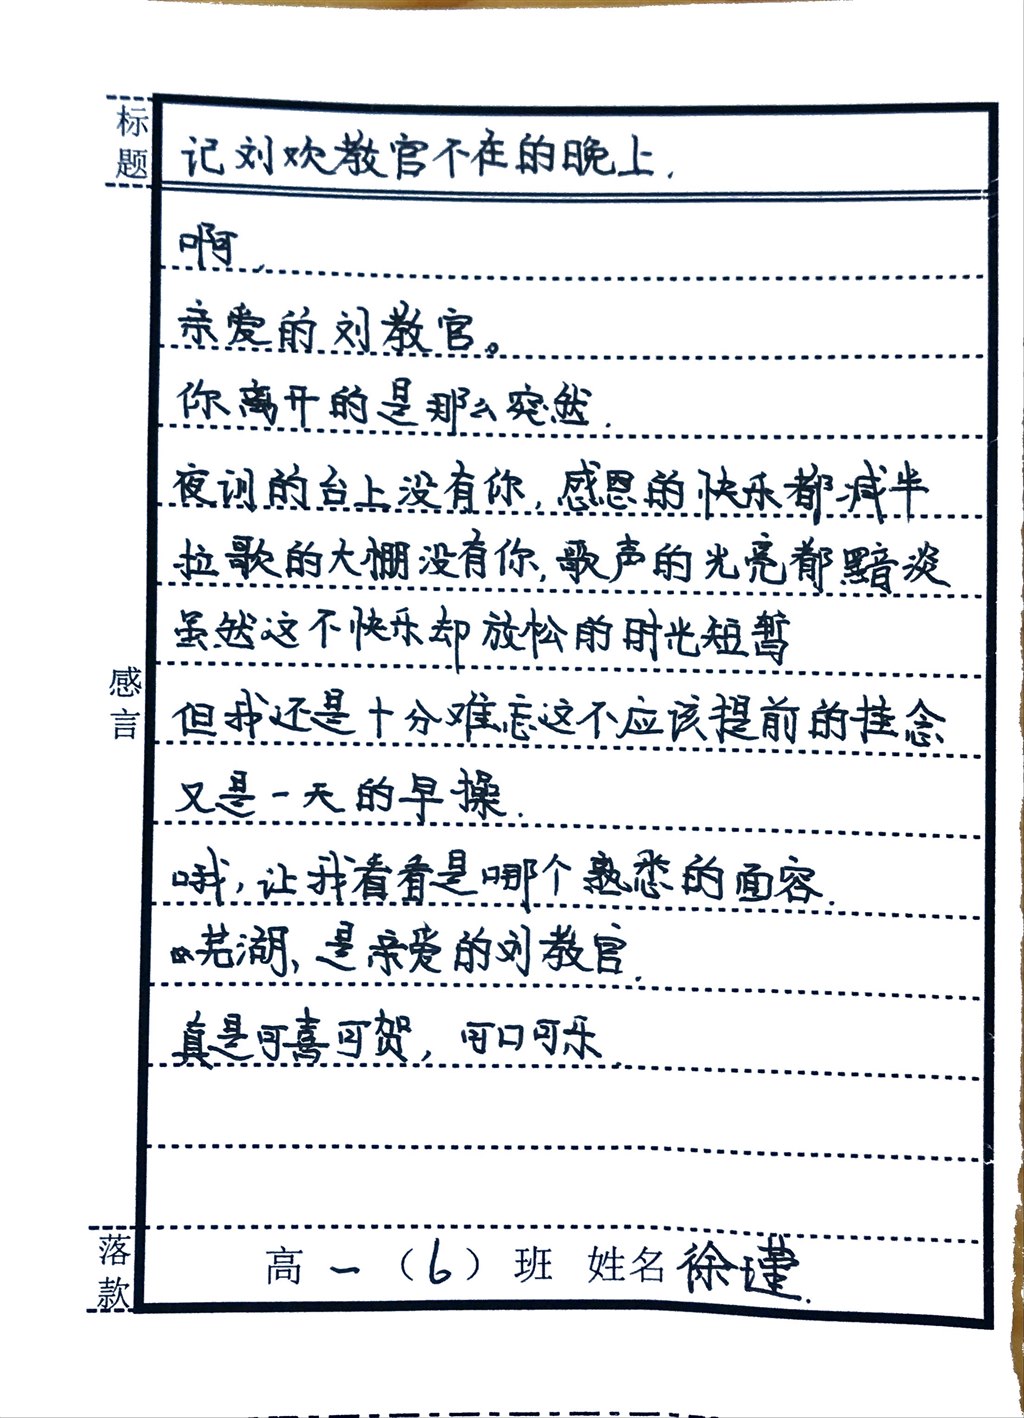 标题
记刘欢教官不在的晚上.
啊.
亲爱的刘教官。
你离开的是那么突然.
夜训的台上没有你,感恩的快乐都减半
拉歌的大棚没有你,歌声的光亮都黯淡
虽然这不快乐却放松的时光短暂
但我还是十分难忘这不应该提前的挂念
又是一天的早操.
哦,让我看看是哪个熟悉的面容.
芜湖,是亲爱的刘教官.
真是可喜可贺,可口可乐.
感言
落款
高一(6)班 姓名徐瑾.